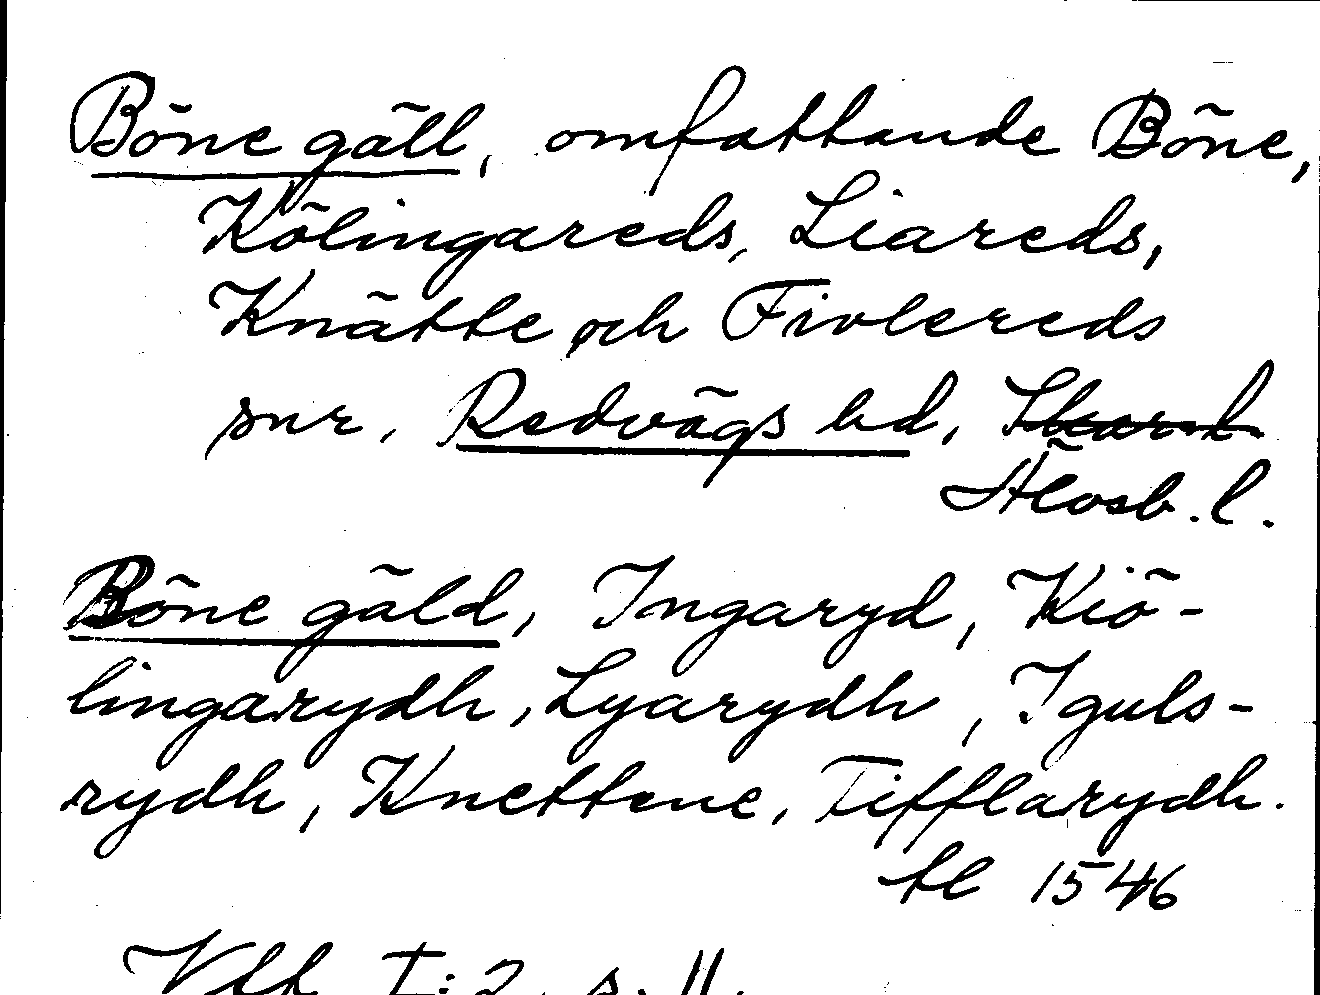 Böne gäll, omfattande Böne,
Kölingareds, Liareds,
Knätte och Fivlereds
snr, Redvägs hd, Skarab.l
Älvsb. l.
Böne gäld, Ingaryd, Kiö-
lingarydh, Lyarydh, Iguls-
rydh, Knettene, Tifflarydh.
tl 1546
I: 2 s. 11.